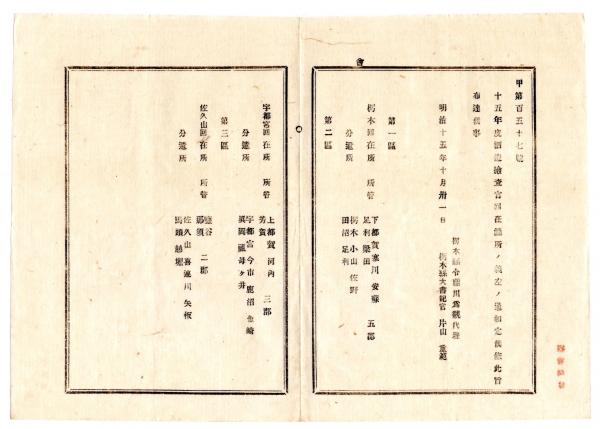 甲第百五十七號
十五年度酒造檢査官回在箇所ノ義左ノ通相定候條此旨
布達候事
明治十五年十月卅一日
栃木縣令藤川爲親代理
栃木縣大書記官 片山重範
第一區
栃木回在所 所管
下都賀 寒川 安蘇
足利 梁田
五郡
分遣所
栃木 小山 佐野
田沼 足利
第二區
宇都宮回在所 所管
上都賀 河内
芳賀
三郡
分遣所
宇都宮 今市 鹿沼
眞岡 祖母ヶ井
第三區
佐久山回在所 所管
鹽谷
那須
二郡
分遣所
佐久山 喜連川 矢板
馬頭 越堀